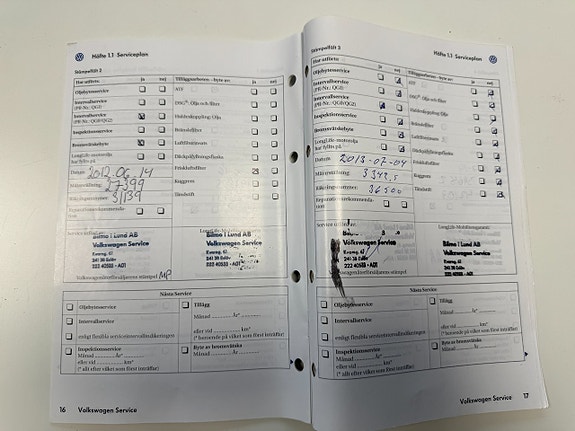 Häfte 1.1 Serviceplan
Stämpelfält 2
Har utförts:
ja
nej
Tilläggsarbeten - byte av:
ja
nej
Oljebytesservice
ATF
Intervallservice
(PR-Nr.: QG1)
DSG®: Olja och filter
Intervallservice
(PR-Nr.: QG0/QG2)
Haldexkoppling: Olja
Inspektionsservice
Bränslefilter
Bromsvätskebyte
Luftfilterinsats
LongLife-motorolja
har fyllts på
Dieselpartikelfilter
Datum
2012-06-14
Friskluftsfilter
27399
Kuggrem
31139
Tändstift
Bilmo i Lund AB
Volkswagen Service
Kvarng. 67
241 38 Eslöv
222 40533 - A01
MP
LongLife-Mobilitetsgaranti
Bilmo i Lund AB
Volkswagen Service
Nästa Service
Oljebytesservice
Intervallservice
enligt flexibla serviceintervallindikeringen
Inspektionsservice
Månad År*
eller vid km*
(* allt efter vilket som först inträffar)
Tillägg
Månad År*
eller vid km*
(* beroende på vilket som först inträffar)
Byte av bromsvätska
Månad År
16 Volkswagen Service
Häfte 1.1 Serviceplan
Stämpelfält 3
Har utförts:
ja
nej
Tilläggsarbeten - byte av:
ja
nej
Oljebytesservice
ATF
Intervallservice
(PR-Nr.: QG1)
DSG®: Olja och filter
Intervallservice
(PR-Nr.: QG0/QG2)
Haldexkoppling: Olja
Inspektionsservice
Bränslefilter
Bromsvätskebyte
Luftfilterinsats
LongLife-motorolja
har fyllts på
Datum
2013-07-04
Friskluftsfilter
Kuggrem
36500
Tändstift
Volkswagen Service
Kvarng. 67
241 38 Eslöv
222 40533 - A01
LongLife-Mobilitetsgaranti
Bilmo i Lund AB
Volkswagen Service
Kvarng. 67
241 38 Eslöv
222 40533 - A01
Nästa Service
Oljebytesservice
Intervallservice
enligt flexibla serviceintervallindikeringen
Inspektionsservice
Månad År*
eller vid km*
(* allt efter vilket som först inträffar)
Tillägg
Månad År*
eller vid km*
(* beroende på vilket som först inträffar)
Byte av bromsvätska
Månad År
Volkswagen Service 17